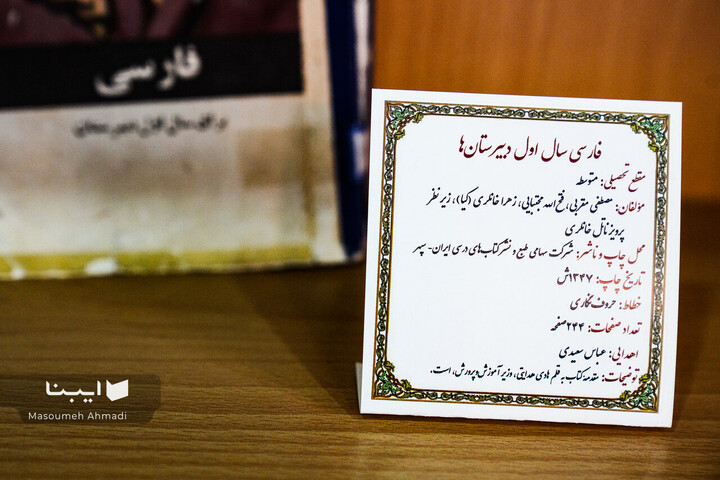 فارسی
برای سال اول دبیرستان
فارسی سال اول دبیرستان‌ها
مقطع تحصیلی: متوسطه
مؤلفان: مصطفی مقربی، فتح‌الله مجتبایی، زهرا خانلری (کیا)، زیر نظر
پرویز ناتل خانلری
محل چاپ و ناشر: شرکت سهامی طبع و نشر کتاب‌های درسی ایران- سپهر
تاریخ چاپ: ۱۳۴۷ش
خطاط: حروف‌نگاری
تعداد صفحات: ۲۴۴صفحه
اهدایی: عباس سعیدی
توضیحات: مقدمه کتاب به قلم هادی هدایتی، وزیر آموزش و پرورش، است.
ایبنا
Masoumeh Ahmadi